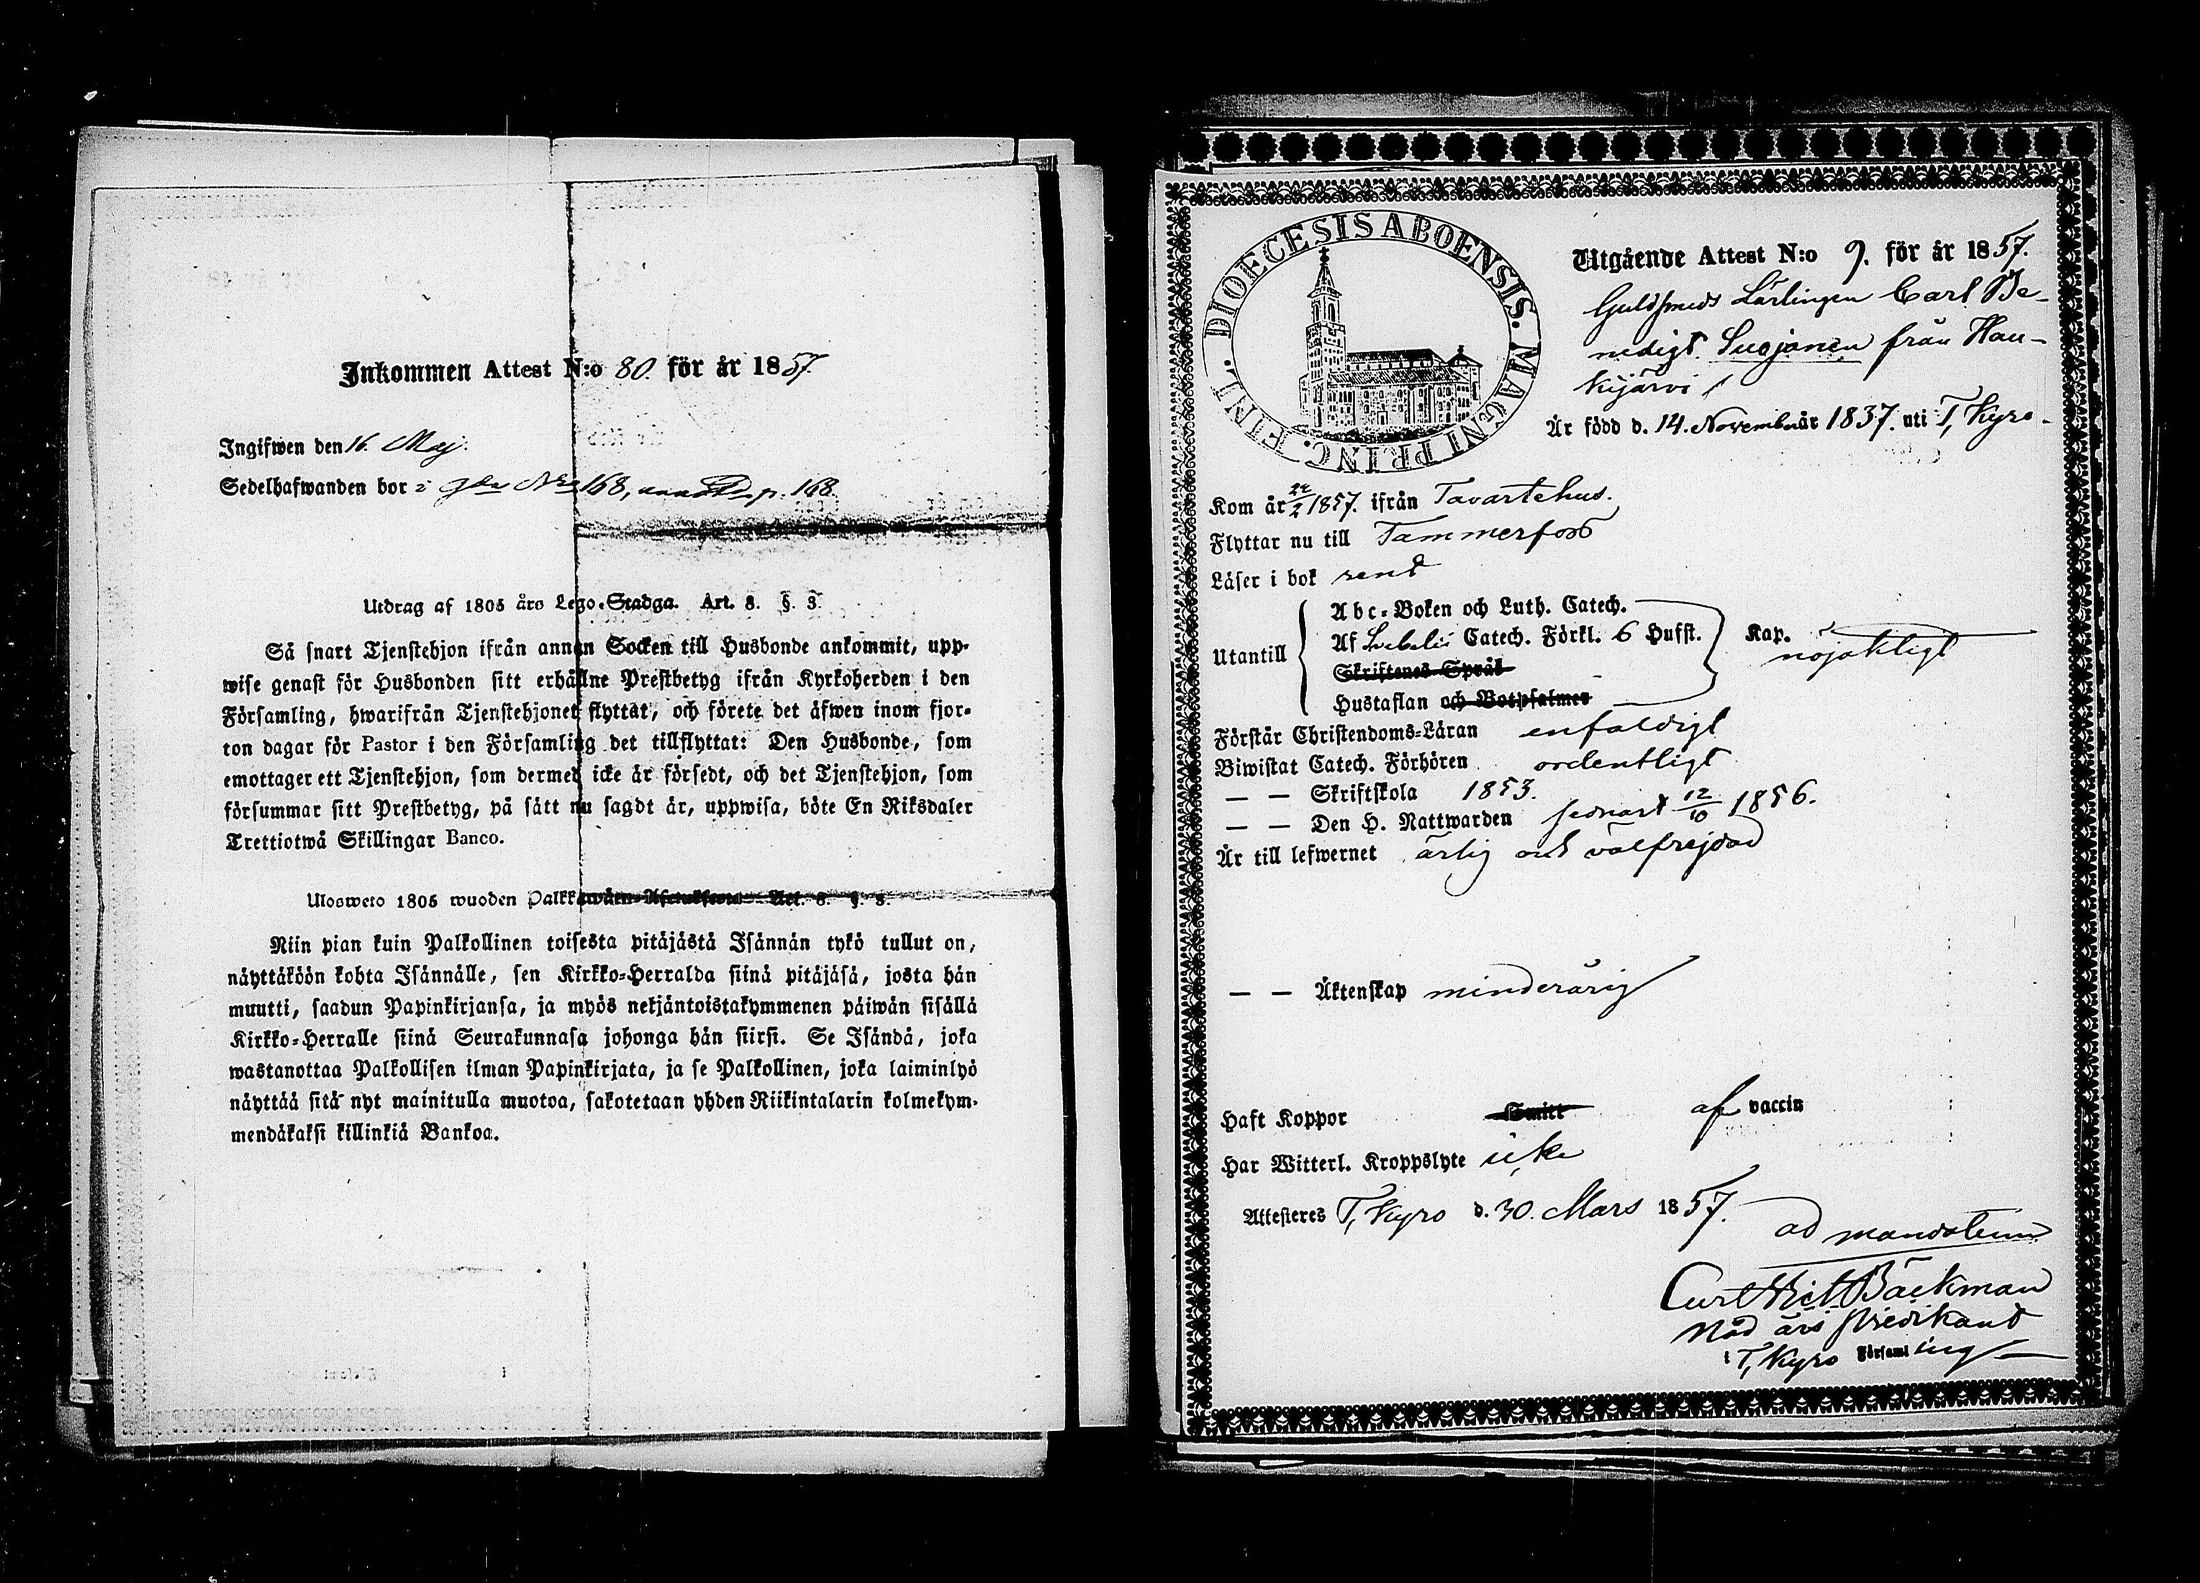 Inkommen Attest N:o 80. för år 1857.
Ingifwen den 16. Maj.
Sedelhafwanden bor i gdn N:o 168, p. 168.
Utdrag af 1805 års Lego-Stadga. Art. 8. §. 3.
Så snart Tjenstehjon ifrån annan Socken till Husbonde ankommit, upp-
wise genast för Husbonden sitt erhållne Prestbetyg ifrån Kyrkoherden i den
Församling, hwarifrån Tjenstehjonet flyttat, och förete det äfwen inom fjor-
ton dagar för Pastor i den Församling det tillflyttat: Den Husbonde, som
emottager ett Tjenstehjon, som dermed icke är försedt, och det Tjenstehjon, som
försummar sitt Prestbetyg, på sätt nu sagdt är, uppwisa, böte En Riksdaler
Trettiotwå Skillingar Banco.
Ulosweto 1805 wuoden Palkkawäen-Asetuksesta Art. 8. §. 3.
Niin pian kuin Palkollinen toisesta pitäjästä Isännän tykö tullut on,
näyttäköön kohta Isännälle, sen Kirkko-Herralda siinä pitäjäsä, josta hän
muutti, saadun Papinkirjansa, ja myös neljäntoistakymmenen päiwän sisällä
Kirkko-Herralle siinä Seurakunnasa johonga hän siirsi. Se Isändä, joka
wastanottaa Palkollisen ilman Papinkirjata, ja se Palkollinen, joka laiminlyö
näyttää sitä nyt mainitulla muotoa, sakotetaan yhden Riikintalarin kolmekym-
mendäkaksi killinkiä Bankoa.
DIOECESIS ABOENSIS. MAGNI PRINC. FINL.
Utgående Attest N:o 9. för år 1857.
Guldsmeds Lärlingen Carl Be-
nedigt Suojanen från Hau-
kijärvi
Är född d. 14. November år 1837. uti T, Kyro.
Kom år 24/2 1857. ifrån Tavastehus.
Flyttar nu till Tammerfors
Läser i bok rent
Utantill
Abc-Boken och Luth. Catech.
Af Svebelii Catech. Förkl. 6 Hufst. Kap. nöjaktligt
Skriftenes Språk
Hustaflan och Botpsalmer
Förstår Christendoms-Läran enfaldigt
Biwistat Catech. Förhören ordentligt
— — Skriftskola 1853.
— — Den H. Nattwarden sednast 12/10 1856.
Är till lefwernet ärlig och välfrejdad
— — Äktenskap minderårig
Haft Koppor Smitt af vaccin
Har Witterl. Kroppslyte icke
Attesteres T, Kyro d. 30. Mars 1857.
ad mandatum
Curt Bäckman
Nåd års predikant
i T, Kyro Församling